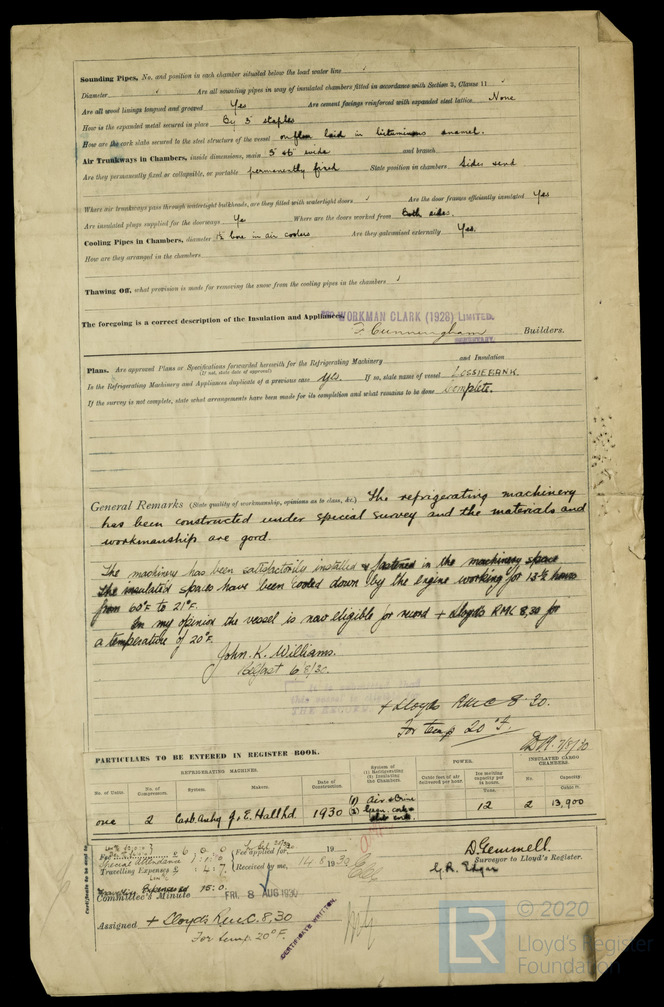 Sounding Pipes, No. and position in each chamber situated below the load water line
Diameter Are all sounding pipes in way of insulated chambers fitted in accordance with Section 3, Clause 11
Are all wood linings tongued and grooved Yes Are cement facings reinforced with expanded steel lattice None
How is the expanded metal secured in place By 3" staples
How are the cork slabs secured to the steel structure of the vessel laid in bituminous enamel.
Air Trunkways in Chambers, inside dimensions, main wide and branch
Are they permanently fixed or collapsible, or portable permanently fixed State position in chambers Sides and
Where air trunkways pass through watertight bulkheads, are they fitted with watertight doors Are the door frames efficiently insulated Yes
Are insulated plugs supplied for the doorways Ye Where are the doors worked from Both sides.
Cooling Pipes in Chambers, diameter bore in air coolers Are they galvanised externally Yes.
How are they arranged in the chambers
Thawing Off, what provision is made for removing the snow from the cooling pipes in the chambers
The foregoing is a correct description of the Insulation and Appliances.
WORKMAN CLARK (1928) LIMITED.
F. Cunningham Builders.
SECRETARY.
Plans. Are approved Plans or Specifications forwarded herewith for the Refrigerating Machinery and Insulation
(If not, state date of approval)
Is the Refrigerating Machinery and Appliances duplicate of a previous case Yes. If so, state name of vessel LOSSIEBANK.
If the survey is not complete, state what arrangements have been made for its completion and what remains to be done Complete.
General Remarks (State quality of workmanship, opinions as to class, &c.) The refrigerating machinery
has been constructed under special survey and the materials and
workmanship are good.
The machinery has been satisfactorily installed & fastened in the machinery space
The insulated spaces have been cooled down by the engine working for 13½ hours
from 60°F to 21°F.
In my opinion the vessel is now eligible for record + Lloyds RMC 8,30 for
a temperature of 20°F.
John. K. Williams.
Belfast 6/8/30.
THE RECORD
+ Lloyds RMC 8 30.
For temp 20°F.
7/8/30
PARTICULARS TO BE ENTERED IN REGISTER BOOK.
REFRIGERATING MACHINES. System of (1) Refrigerating (2) Insulating the Chambers. POWER. INSULATED CARGO CHAMBERS.
No. of Units. No. of Compressors. System. Makers. Date of Construction. Cubic feet of air delivered per hour. Ice melting capacity per 24 hours Tons. No. Capacity. Cubic ft.
one 2 Carb. Anhy J. & E. Hall Ltd 1930 (1) Air & Brine 12 2 13,900
(2)
Certificate to be sent to
Fee 6 : 0 : 0 Fee applied for 19
Special Attendance
Travelling Expenses £ 1 : 4 : 7 Received by me, 14.8.1930
D. Gemmell.
G. R. Edgar
Surveyor to Lloyd's Register.
Travelling Expenses 15:0
Committee's Minute FRI. 8 AUG 1930
Assigned + Lloyds RMC. 8,30
For temp. 20°F.
CERTIFICATE WRITTEN.
LR
© 2020
Lloyd's Register
Foundation